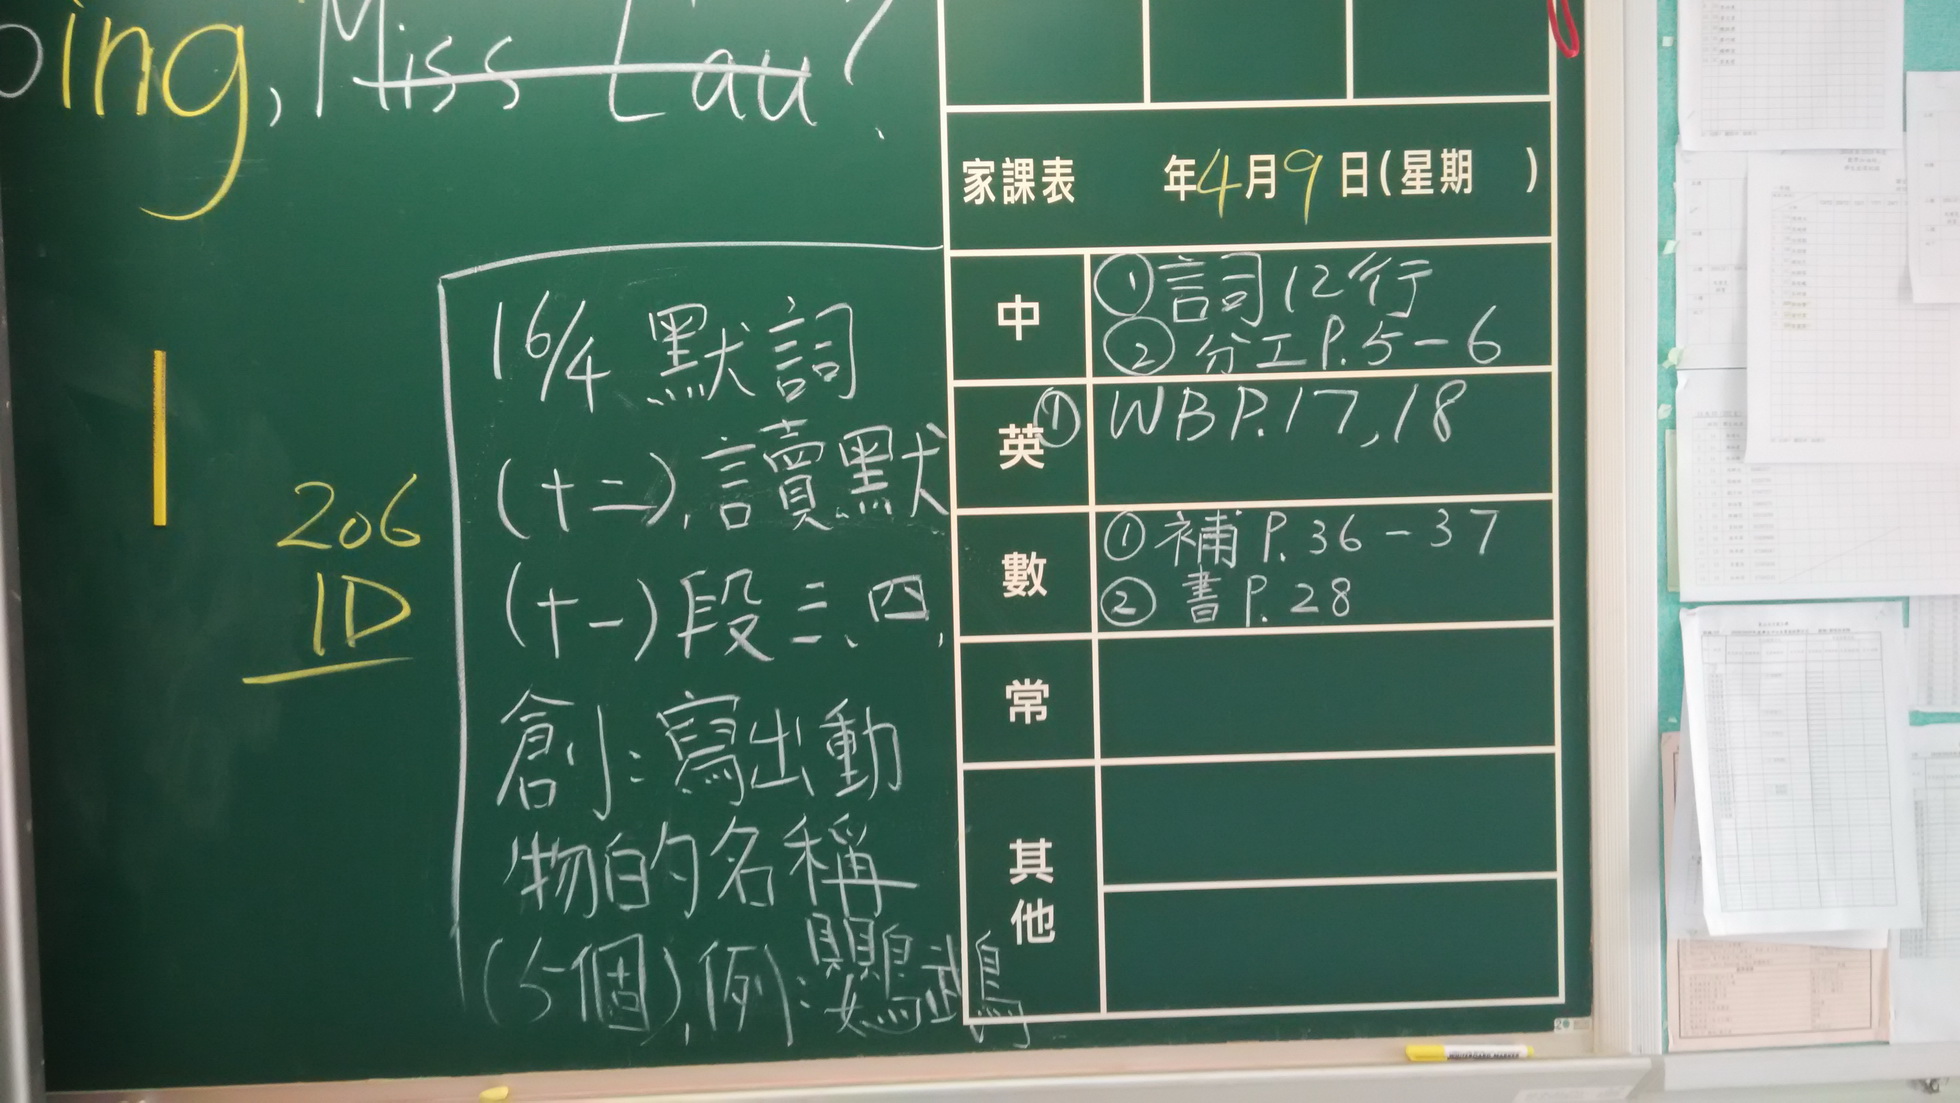 ing, Miss Lau?
家課表 年4月9日(星期 )
中
①詞12行
②分工P.5-6
英
①WBP.17,18
數
①補P.36-37
②書P.28
常
其他
16/4 默詞
(十二),讀默
(十一)段三、四,
創:寫出動
物的名稱
(5個),例:鸚鵡
206
1D